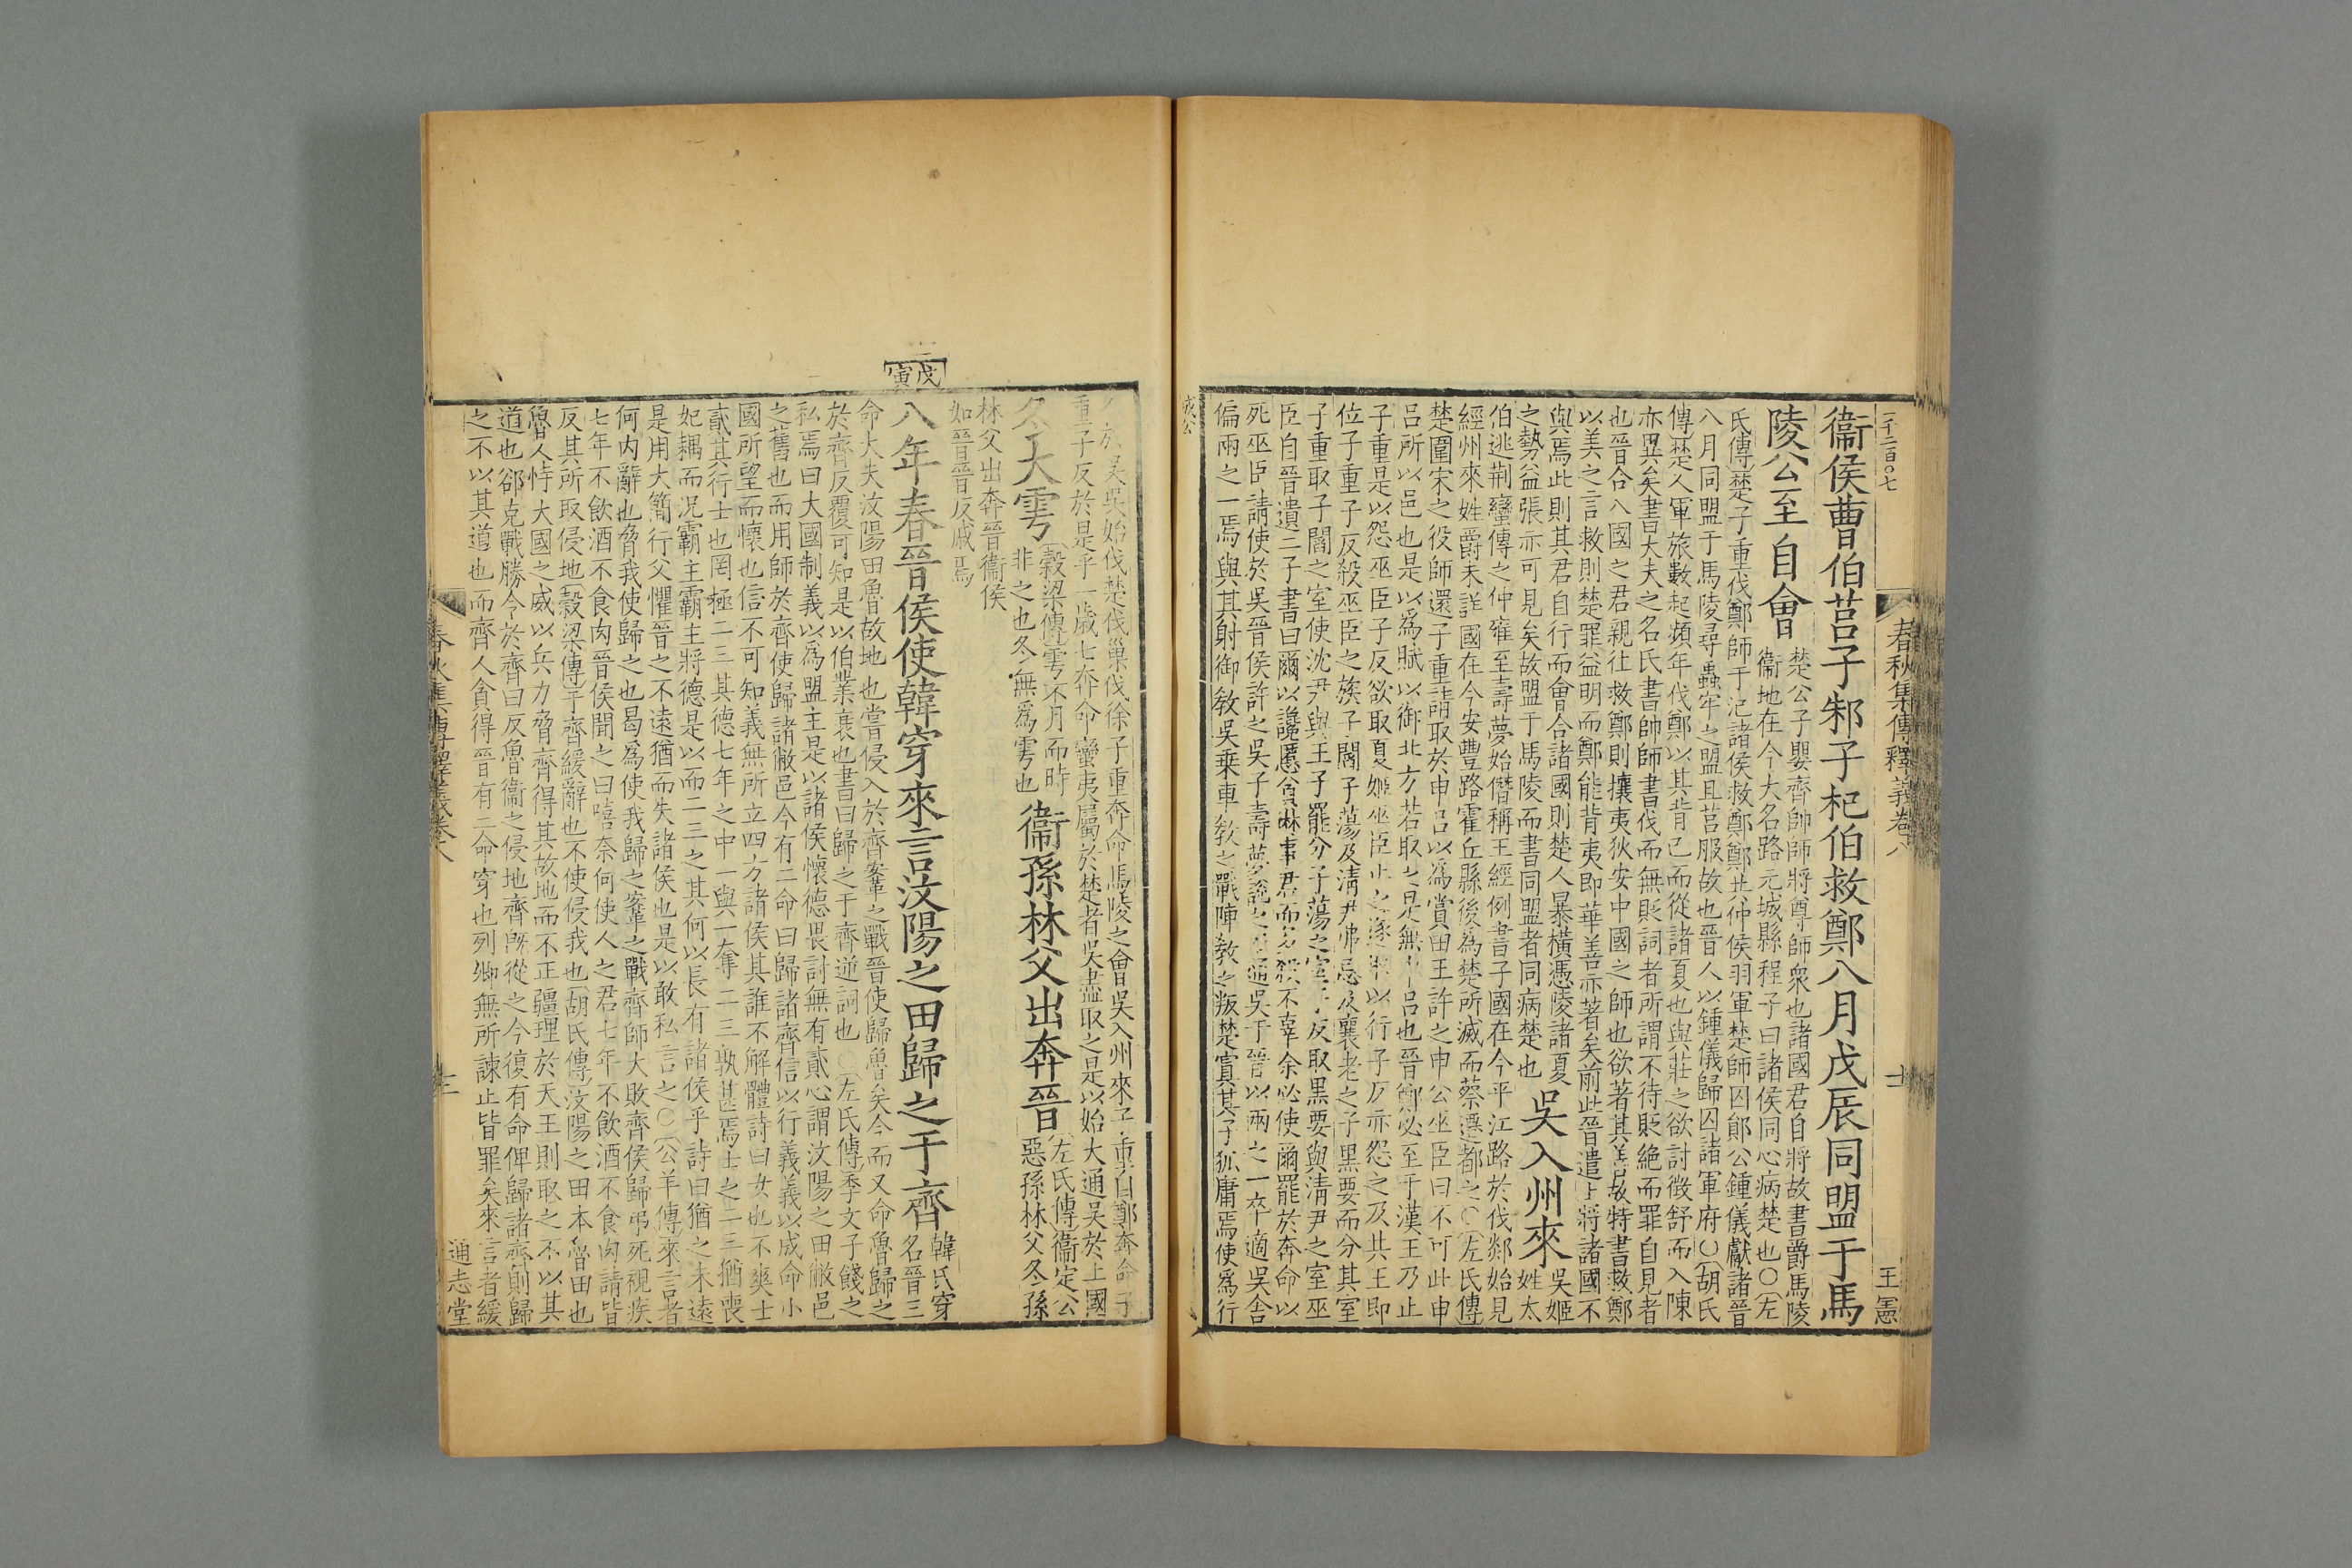 一千二百〇七
春秋集傳釋義卷八
士
王憲
衞侯曹伯莒子邾子杞伯救鄭八月戊辰同盟于馬
陵公至自會
楚公子嬰齊帥師將尊師衆也諸國君自將故書爵馬陵
衞地在今大名路元城縣程子曰諸侯同心病楚也〇左
氏傳楚子重伐鄭師于氾諸侯救鄭鄭共仲侯羽軍楚師囚鄖公鍾儀獻諸晉
八月同盟于馬陵尋蟲牢之盟且莒服故也晉人以鍾儀歸囚諸軍府〇胡氏
傳楚人軍旅數起頻年伐鄭以其背己而從諸夏也與莊之欲討徵舒而入陳
亦異矣書大夫之名氏書帥師書伐而無貶詞者所謂不待貶絶而罪自見者
也晉合八國之君親往救鄭則攘夷狄安中國之師也欲著其善故特書救鄭
以美之言救則楚罪益明而鄭能背夷即華善亦著矣前此晉遣上將諸國不
與焉此則其君自行而會合諸國則楚人暴橫憑陵諸夏
之勢益張亦可見矣故盟于馬陵而書同盟者同病楚也
吳入州來
吳姬
姓太
伯逃荆蠻傳之仲雍至壽夢始僭稱王經例書子國在今平江路於伐郯始見
經州來姓爵未詳國在今安豐路霍丘縣後爲楚所滅而蔡遷都之〇左氏傳
楚圍宋之役師還子重請取於申呂以爲賞田王許之申公巫臣曰不可此申
呂所以邑也是以爲賦以御北方若取之是無申呂也晉鄭必至于漢王乃止
子重是以怨巫臣子反欲取夏姬巫臣止之遂取以行子反亦怨之及共王即
位子重子反殺巫臣之族子閻子蕩及淸尹弗忌及襄老之子黑要而分其室
子重取子閻之室使沈尹與王子罷分子蕩之室子反取黑要與淸尹之室巫
臣自晉遺二子書曰爾以讒慝貪惏事君而多殺不辜余必使爾罷於奔命以
死巫臣請使於吳晉侯許之吳子壽夢說之乃通吳于晉以兩之一卒適吳舍
偏兩之一焉與其射御敎吳乗車敎之戰陣敎之叛楚寘其子狐庸焉使爲行
成公
人於吳吳始伐楚伐巢伐徐子重奔命馬陵之會吳入州來子重自鄭奔命子
重子反於是乎一歲七奔命蠻夷屬於楚者吳盡取之是以始大通吳於上國
冬大雩
穀梁傳雩不月而時
非之也冬無爲雩也
衞孫林父出奔晉
左氏傳衞定公
惡孫林父冬孫
林父出奔晉衞侯
如晉晉反戚焉
戊寅
八年春晉侯使韓穿來言汶陽之田歸之于齊
韓氏穿
名晉三
命大夫汶陽田魯故地也嘗侵入於齊鞌之戰晉使歸魯矣今而又命魯歸之
於齊反覆可知是以伯業衰也書曰歸之于齊逆詞也〇左氏傳季文子餞之
私焉曰大國制義以爲盟主是以諸侯懷德畏討無有貳心謂汶陽之田敝邑
之舊也而用師於齊使歸諸敝邑今有二命曰歸諸齊信以行義義以成命小
國所望而懷也信不可知義無所立四方諸侯其誰不解體詩曰女也不爽士
貳其行士也罔極二三其德七年之中一與一奪二三孰甚焉士之二三猶喪
妃耦而况霸主霸主將德是以而二三之其何以長有諸侯乎詩曰猶之未遠
是用大簡行父懼晉之不遠猶而失諸侯也是以敢私言之〇公羊傳來言者
何内辭也脅我使歸之也曷爲使我歸之鞌之戰齊師大敗齊侯歸弔死視疾
七年不飲酒不食肉晉侯聞之曰嘻奈何使人之君七年不飲酒不食肉請皆
反其所取侵地穀梁傳于齊緩辭也不使侵我也胡氏傳汶陽之田本魯田也
魯人恃大國之威以兵力脅齊得其故地而不正疆理於天王則取之不以其
道也郤克戰勝令於齊曰反魯衞之侵地齊旣從之今復有命俾歸諸齊則歸
之不以其道也而齊人貪得晉有二命穿也列卿無所諫止皆罪矣來言者緩
春秋集傳釋義卷八
士
通志堂